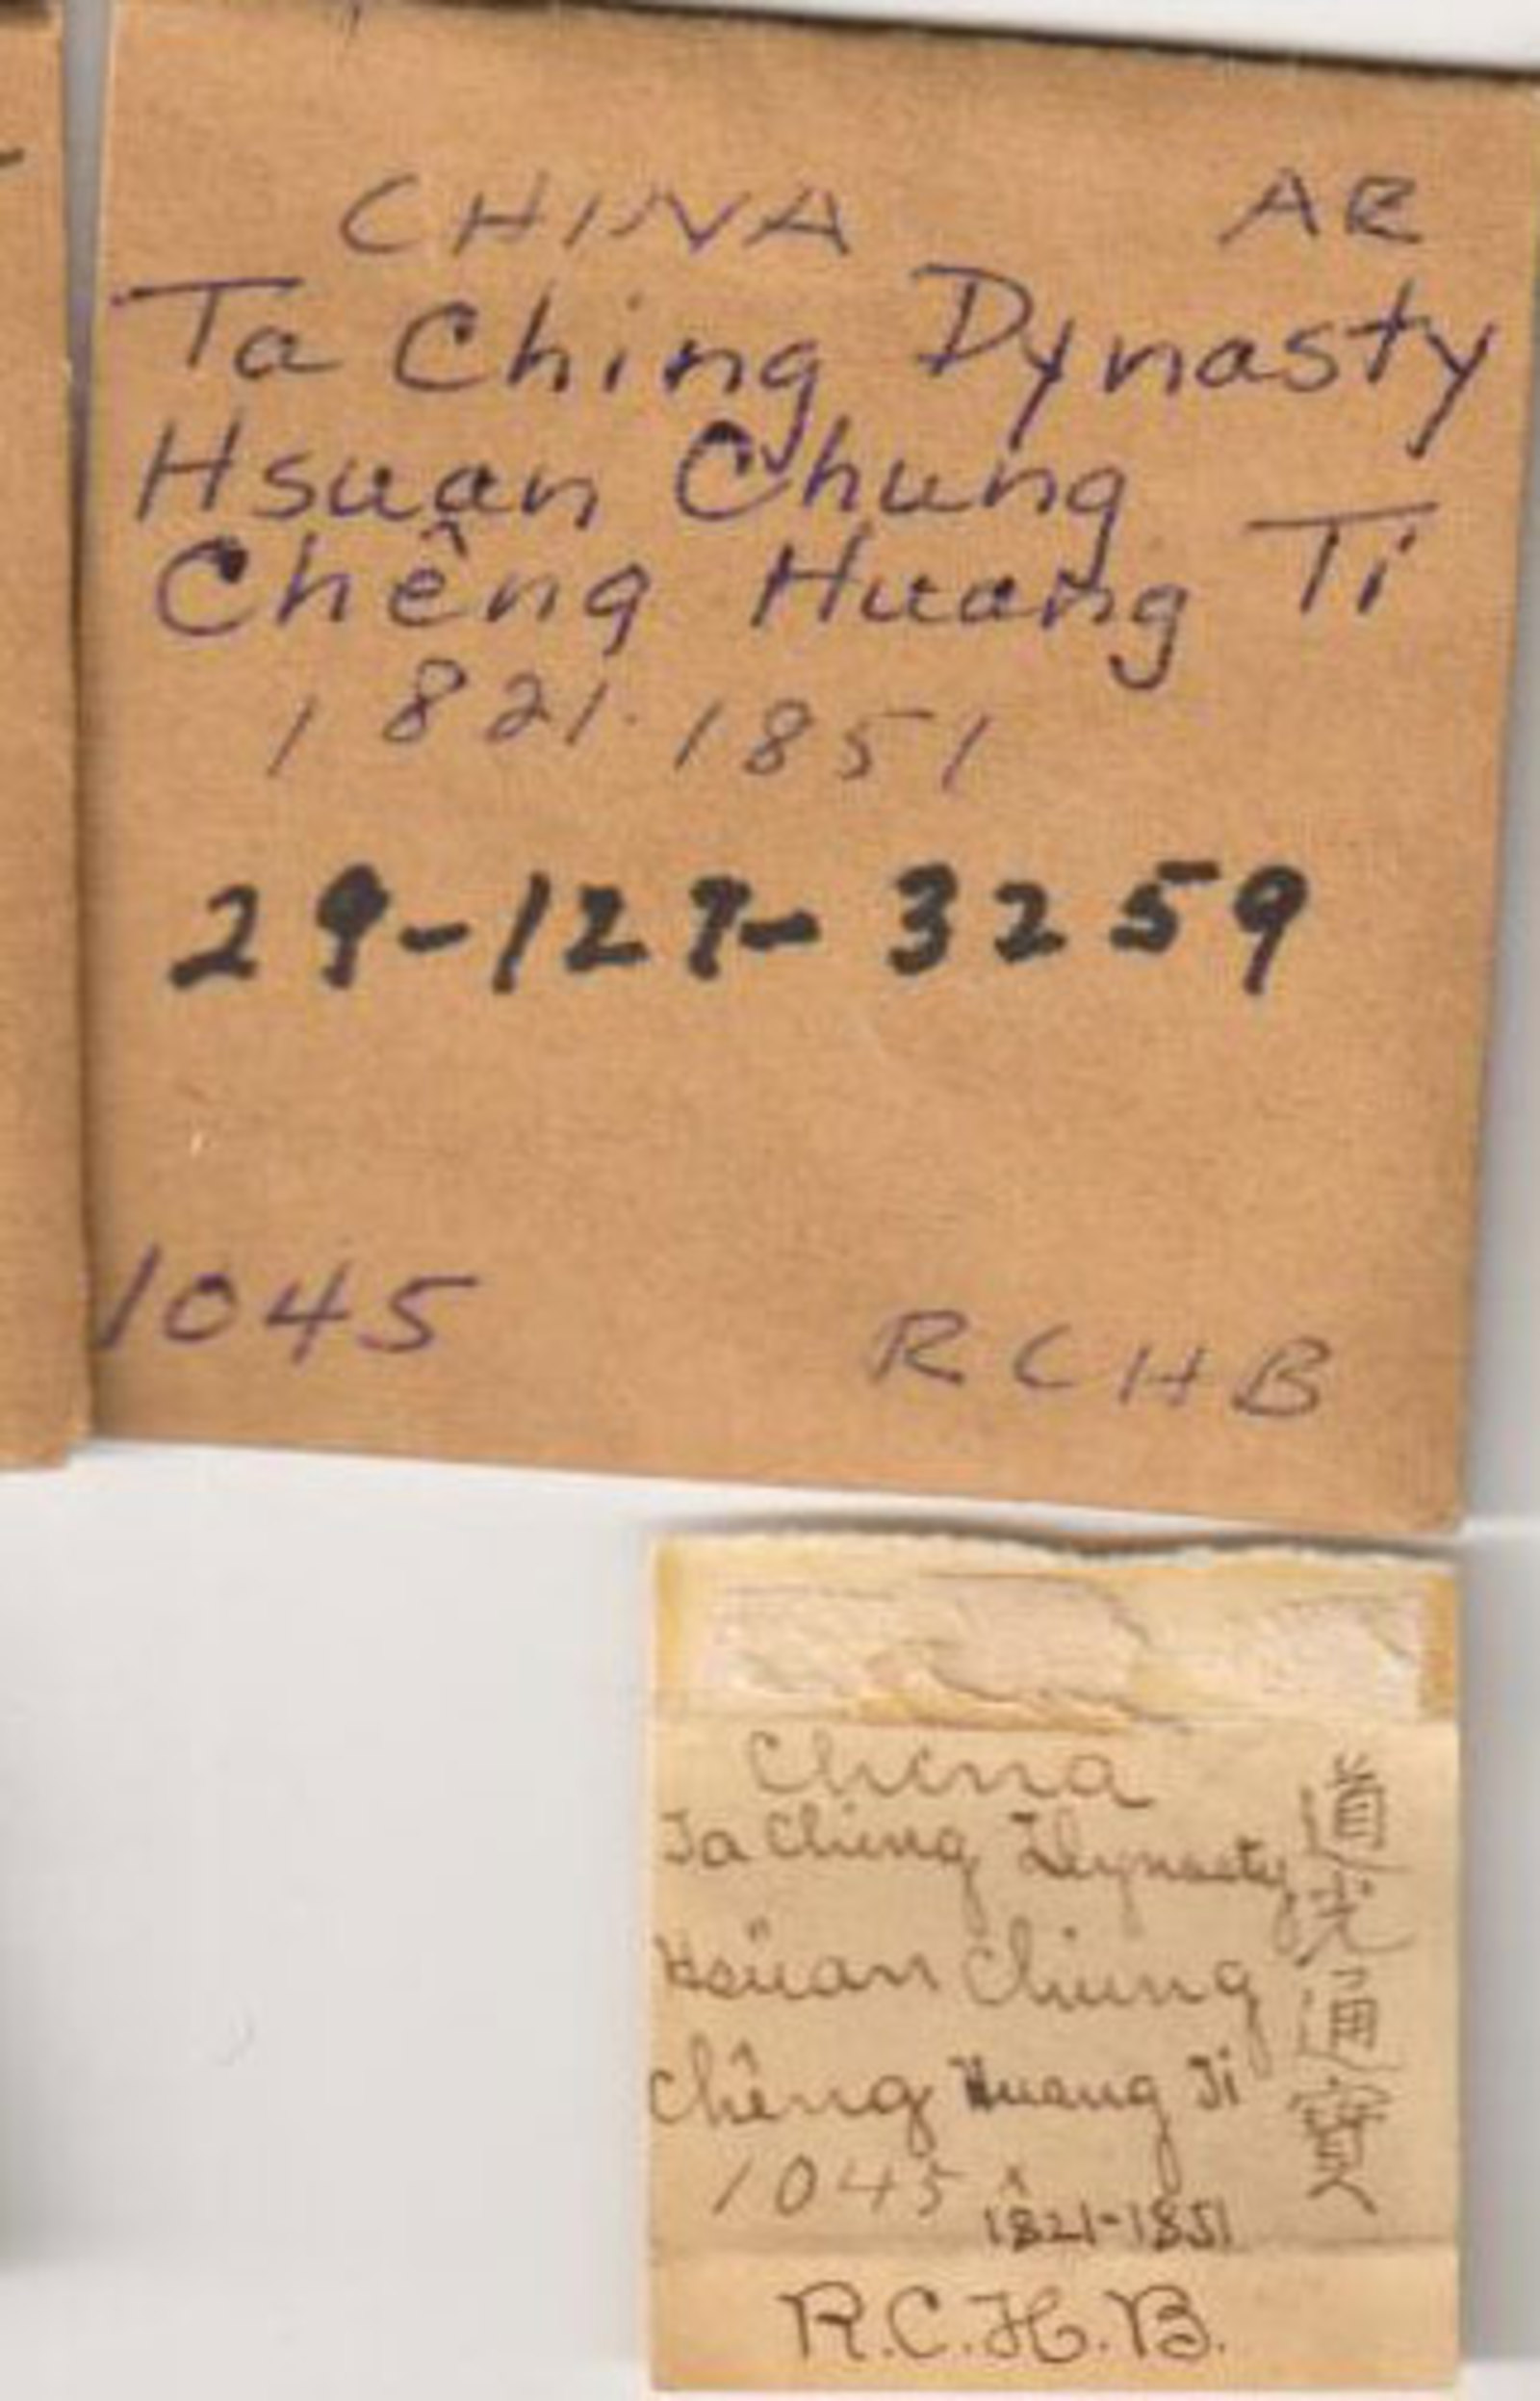 CHINA AE
Ta Ching Dynasty
Hsuan Chung
Chêng Huang Ti
1821-1851
29-127-3259
1045 RCHB
China
Ta Ching Dynasty
Hsüan Chung
Chêng Huang Ti
1045
1821-1851
R.C.H.B.
道光通寳